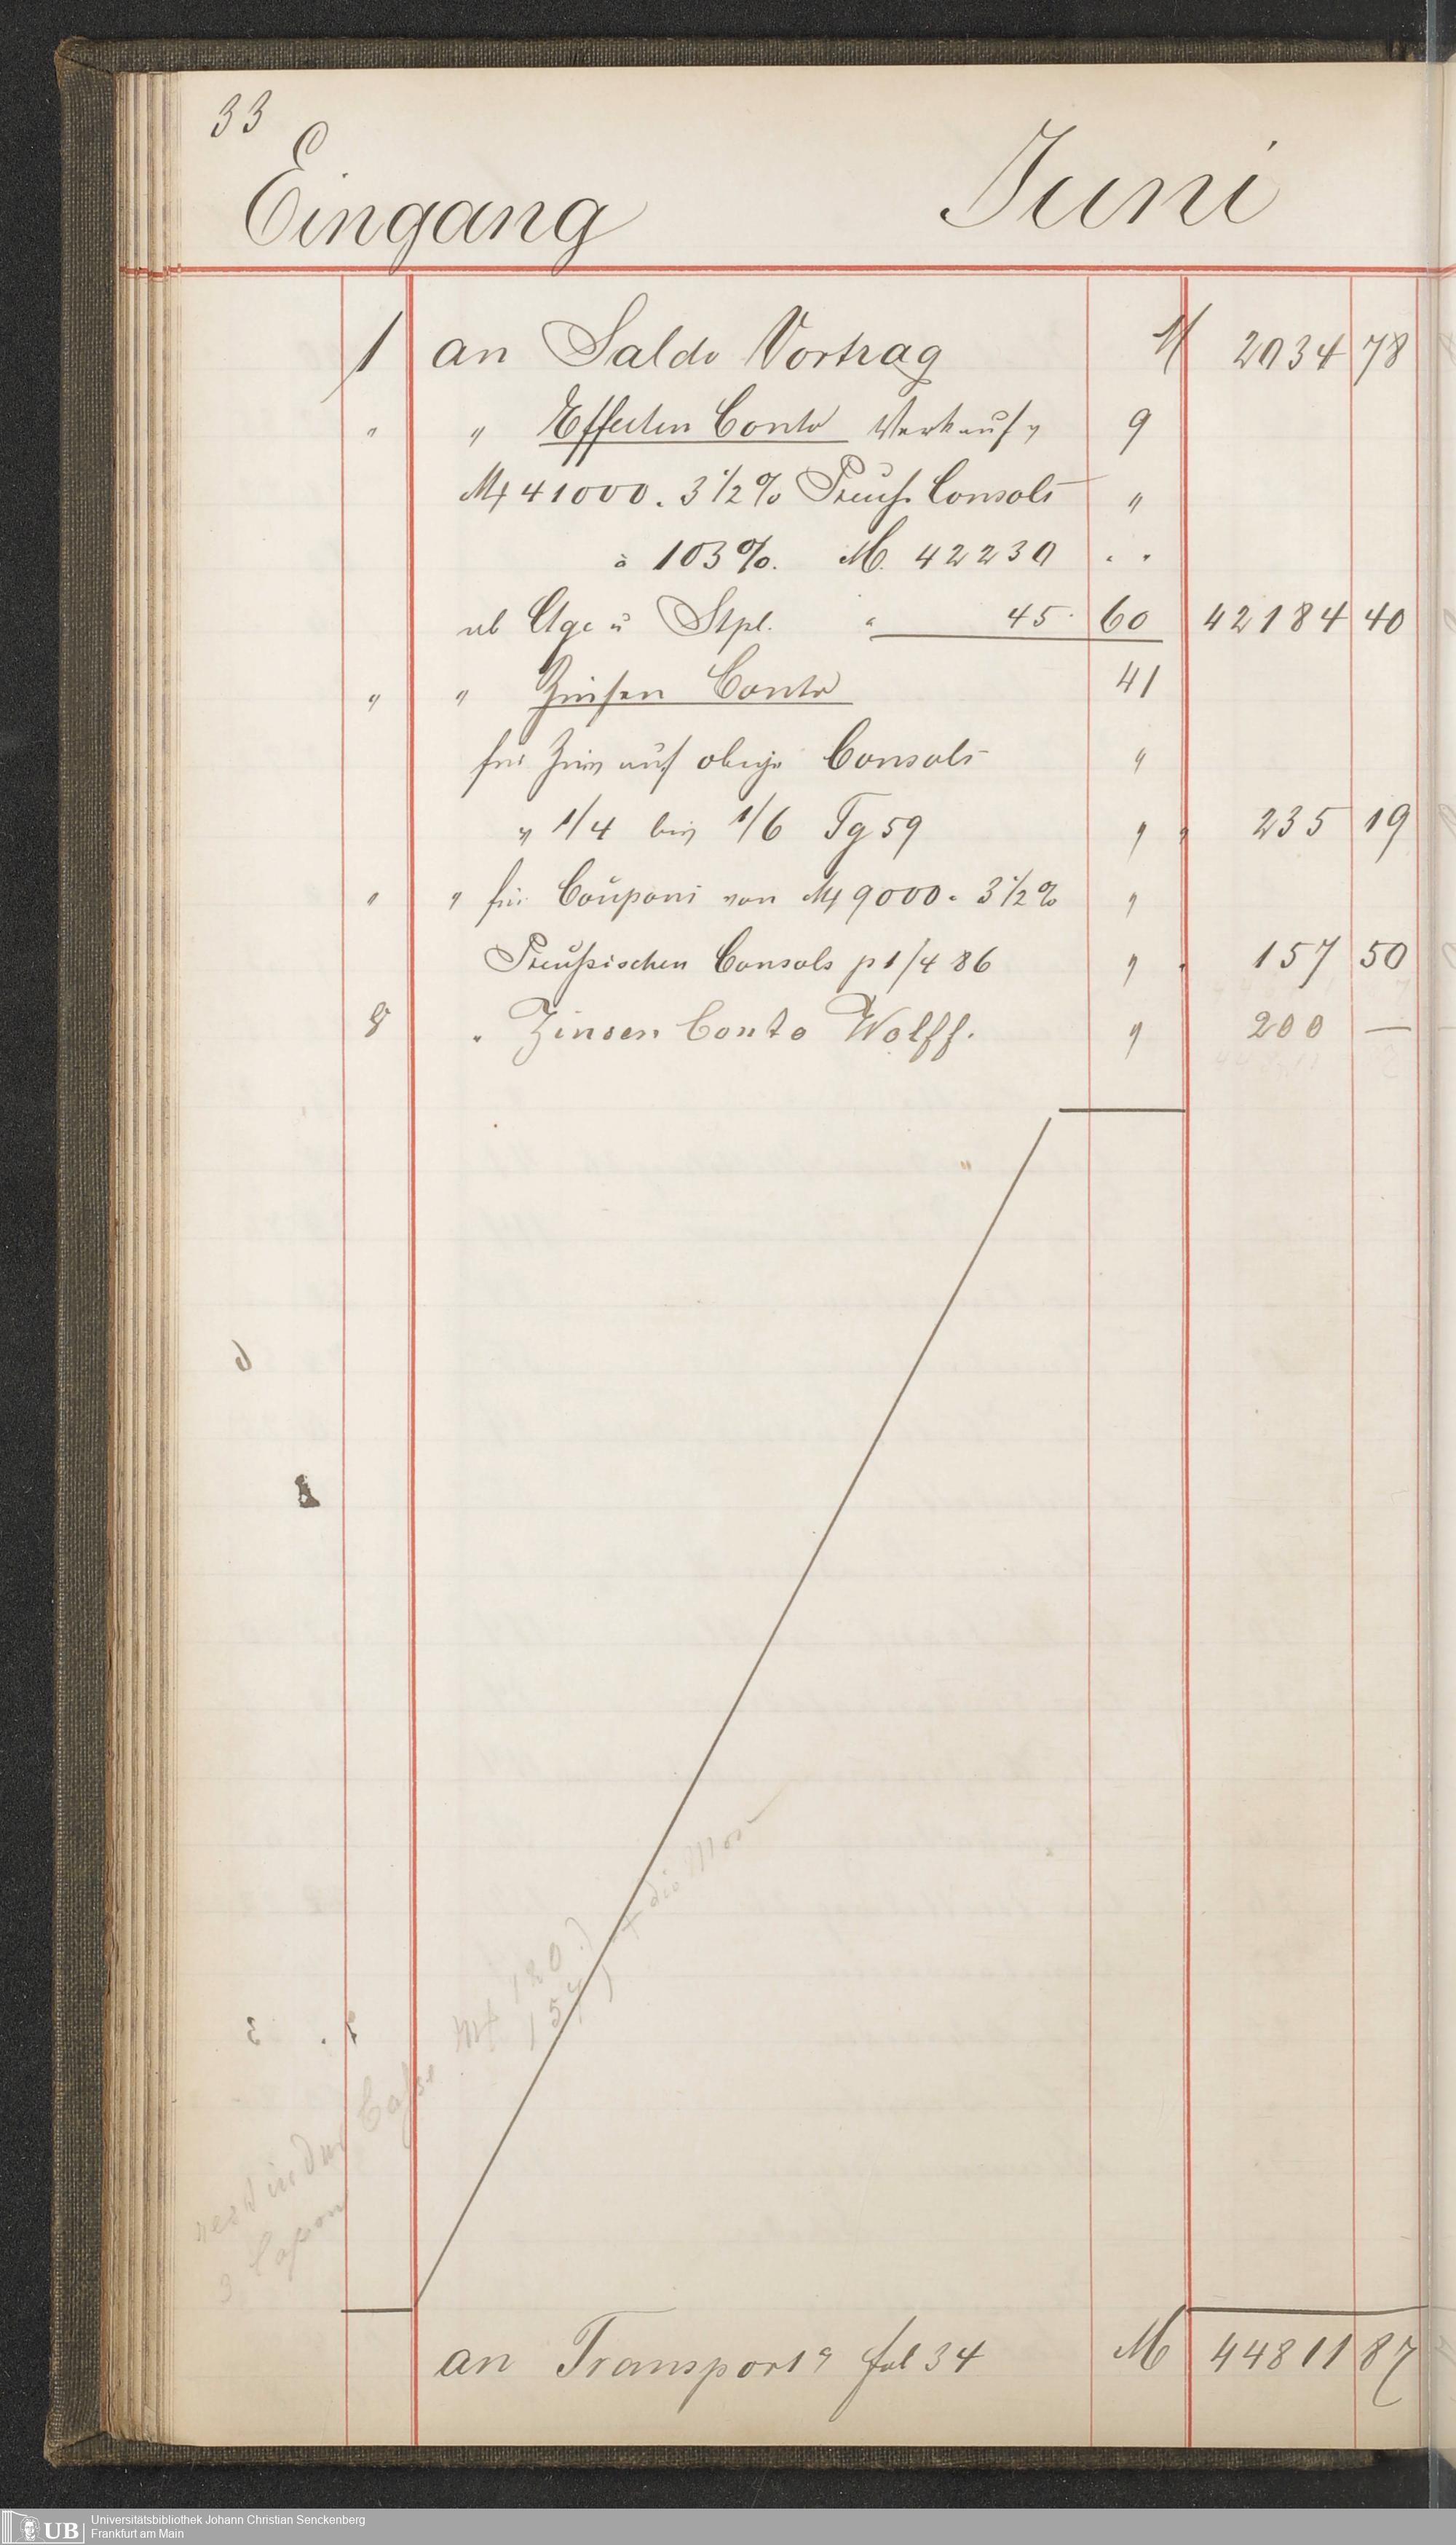 33
Eingang Juni
1 an Saldo Vortrag M 2034 78
" " Effecten Conto Verkauf v 9
M 41000. 3 1/2 % Preuß. Consols "
à 103 %. M. 42230 . .
ab Ctge u Stpl. " 45. 60 42184 40
" " Zinsen Conto 41
für Zins auf obige Consols "
v 1/4 bis 1/6 Tg 59 " " 235 19
" " für Coupons von M 9000. 3 1/2 % "
Preußischen Consols p 1/4 86 " " 157 50
" Zinsen Conto Wolff. " 200 —
M 180
157
rest in der Casse
3
an Transport a fol 34 M 44811 87
Universitätsbibliothek Johann Christian Senckenberg
UB Frankfurt am Main